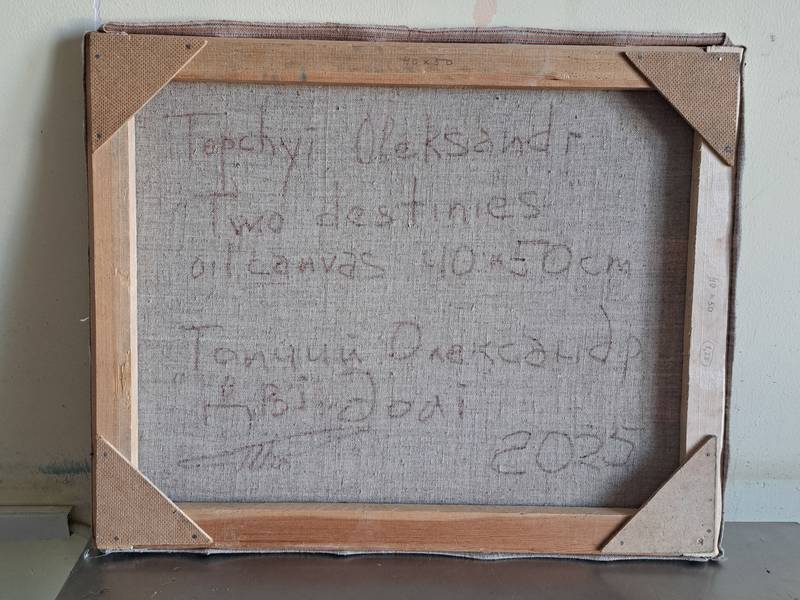 40x50
Topchyi Oleksandr
"Two destinies"
oil canvas 40x50cm
Топчий Олександр
"Дві долі"
2025
40x50